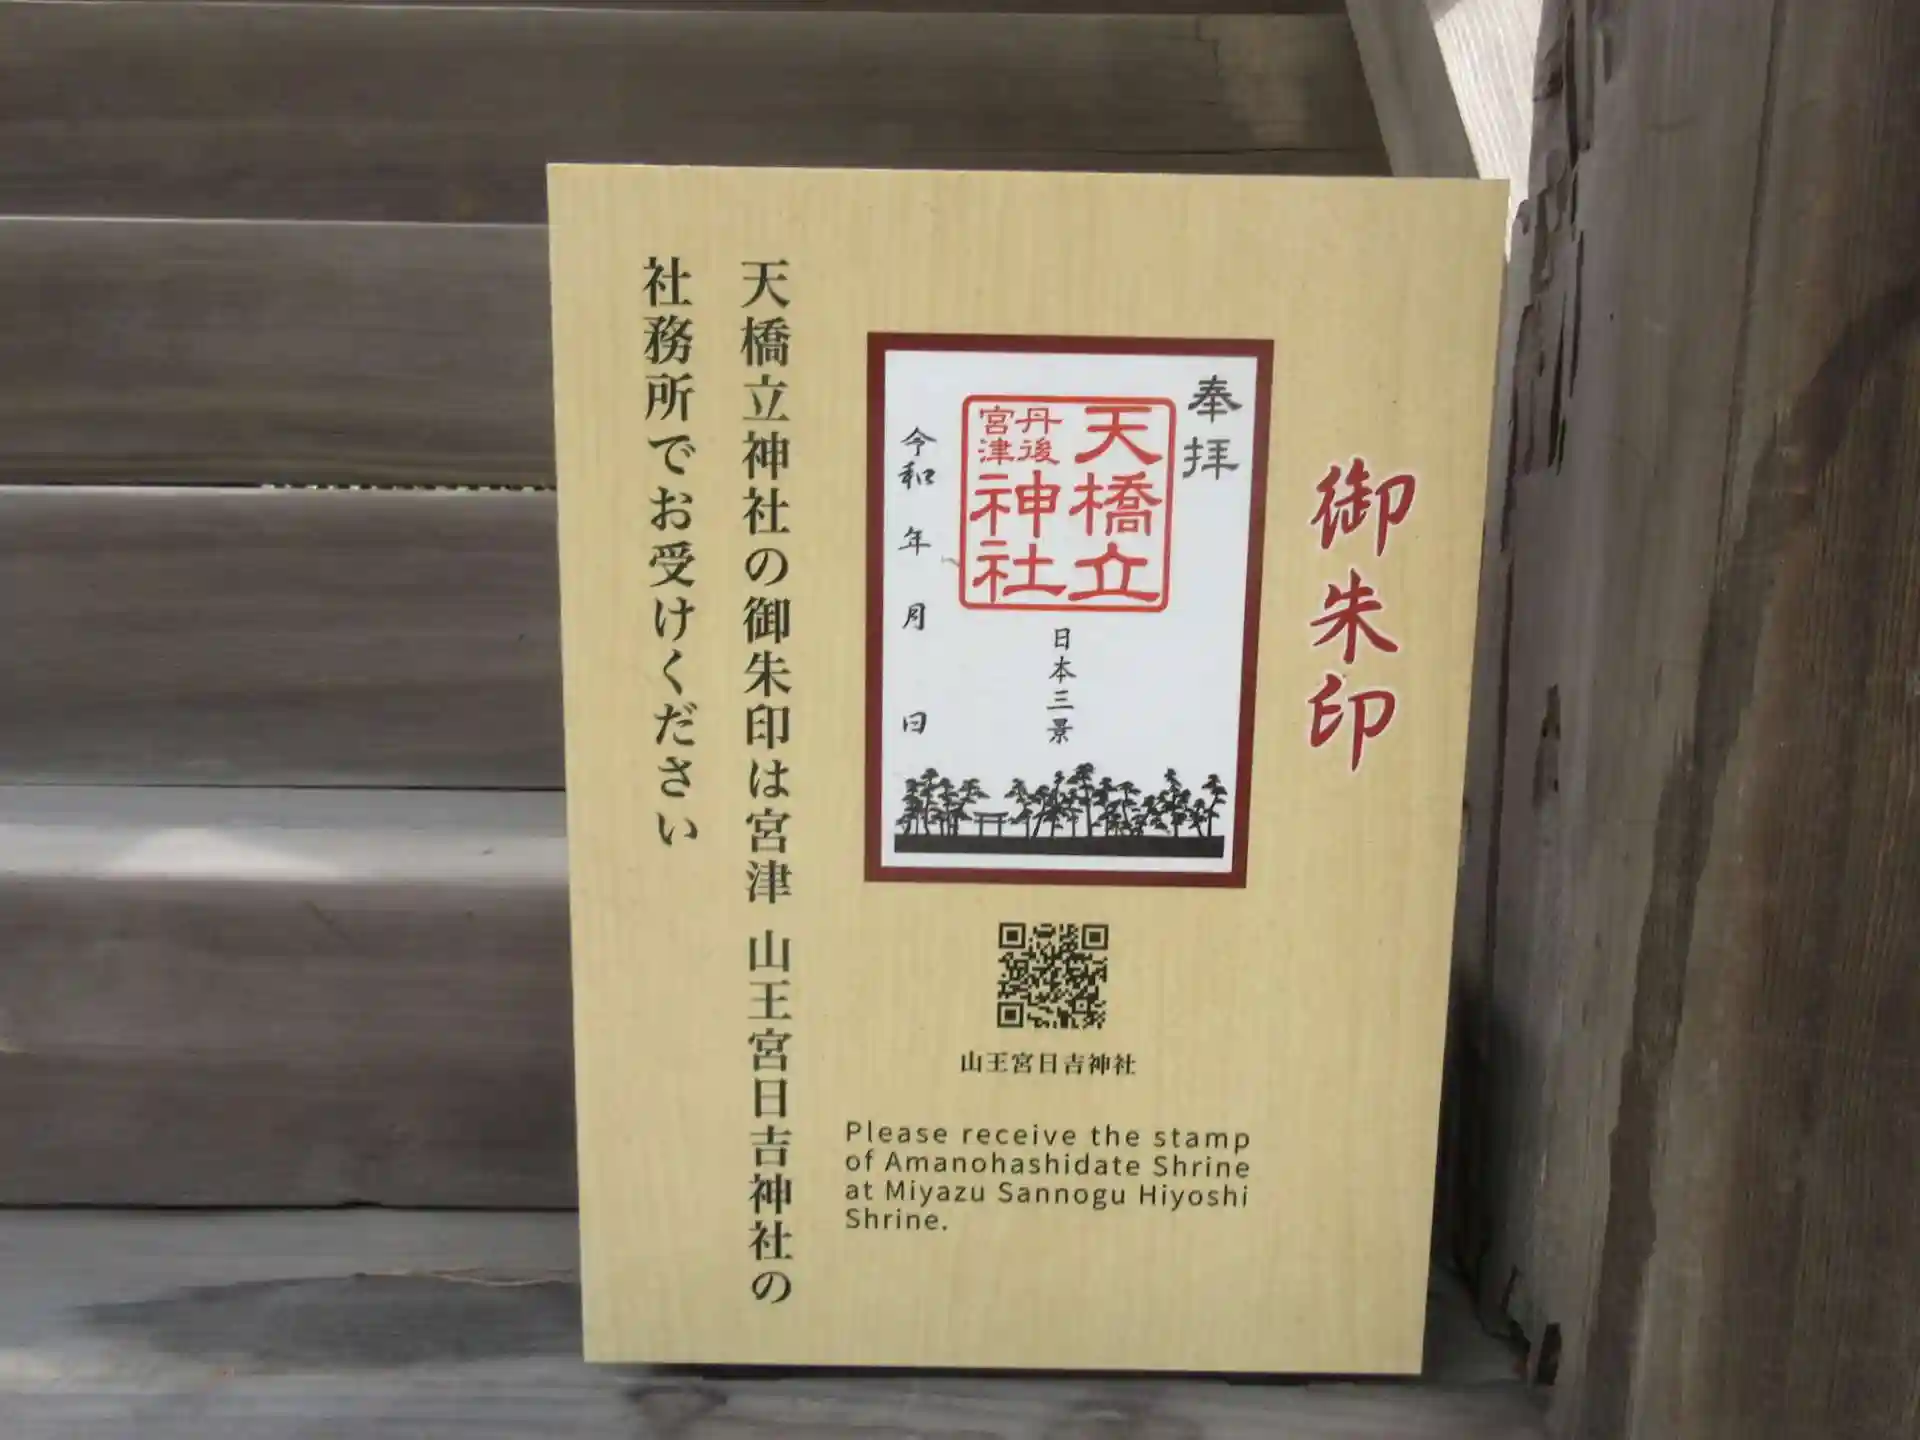 御朱印
奉拝
天橋立
神社
丹後
宮津
日本三景
令和 年 月 日
山王宮日吉神社
Please receive the stamp
of Amanohashidate Shrine
at Miyazu Sannogu Hiyoshi
Shrine.
天橋立神社の御朱印は宮津 山王宮日吉神社の
社務所でお受けください